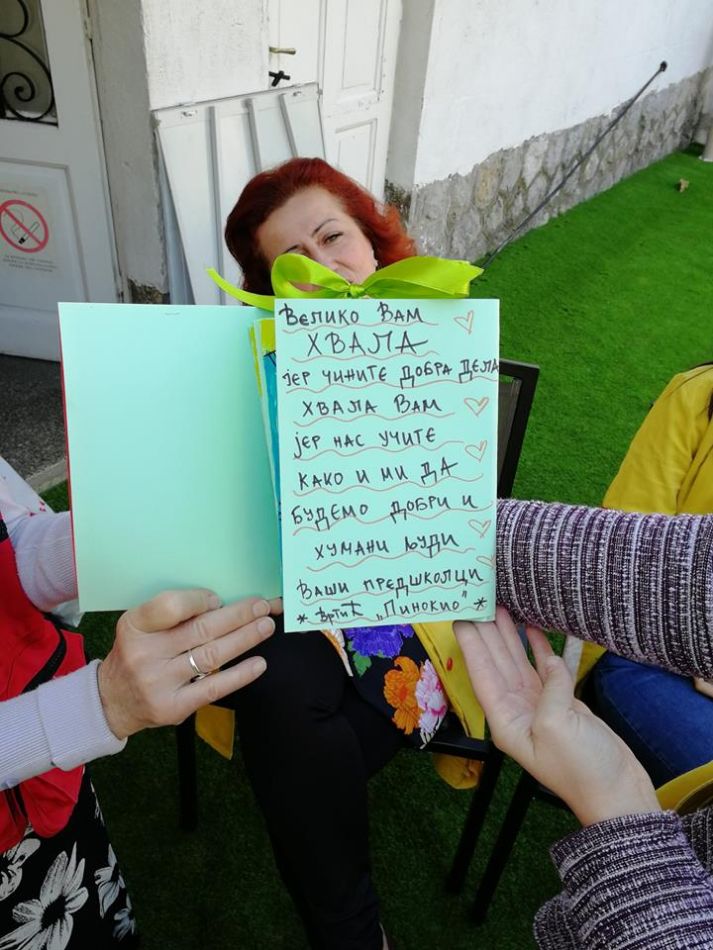 Велико Вам
ХВАЛА
јер чините добра дела
Хвала Вам
јер нас учите
како и ми да
будемо добри и
хумани људи
Ваши предшколци
* Вртић „Пинокио" *